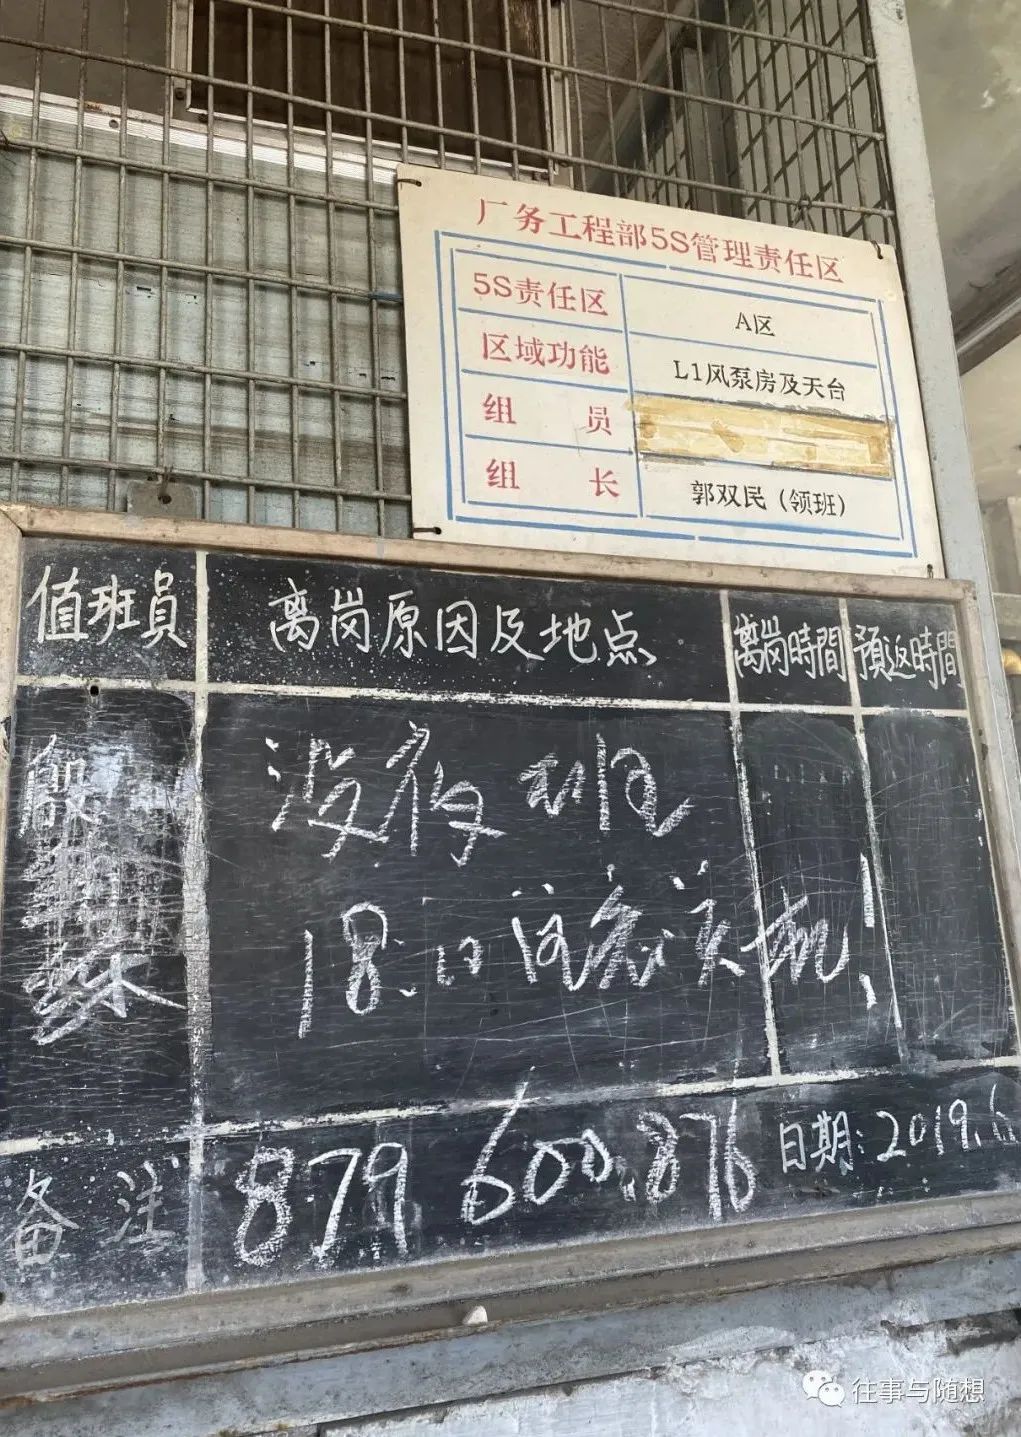 厂务工程部5S管理责任区
5S责任区 A区
区域功能 L1风泵房及天台
组员
组长 郭双民（领班）
值班員 离岗原因及地点 离岗時間 预返時間
殷 没夜班
18:日 关机！
备注 879 600.876 日期：2019.6
往事与随想